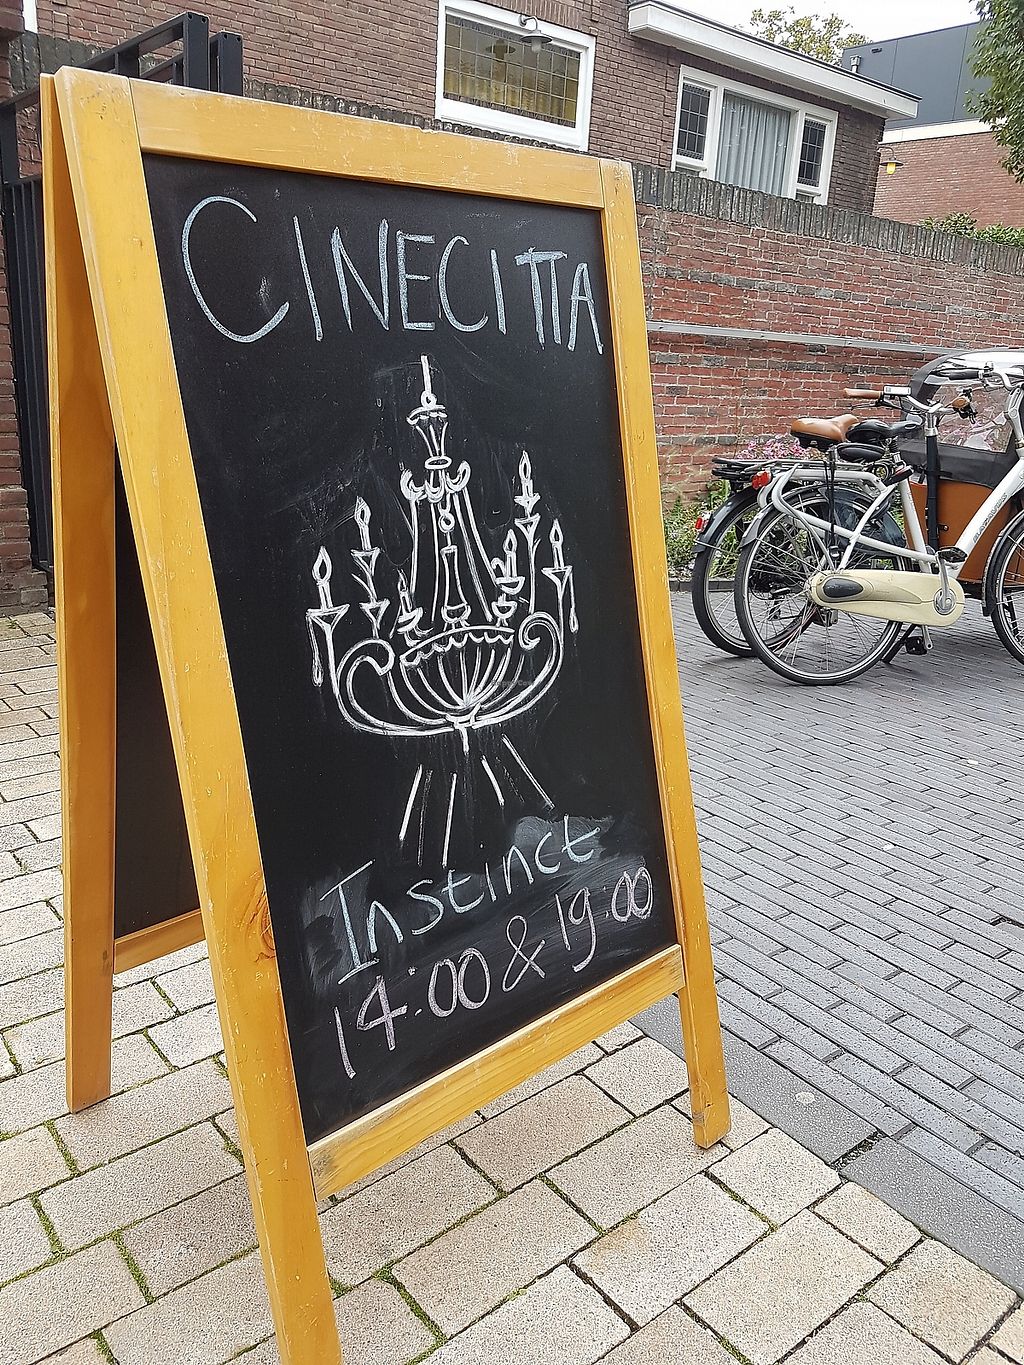 CINECITTA
Instinct
14:00 & 19:00